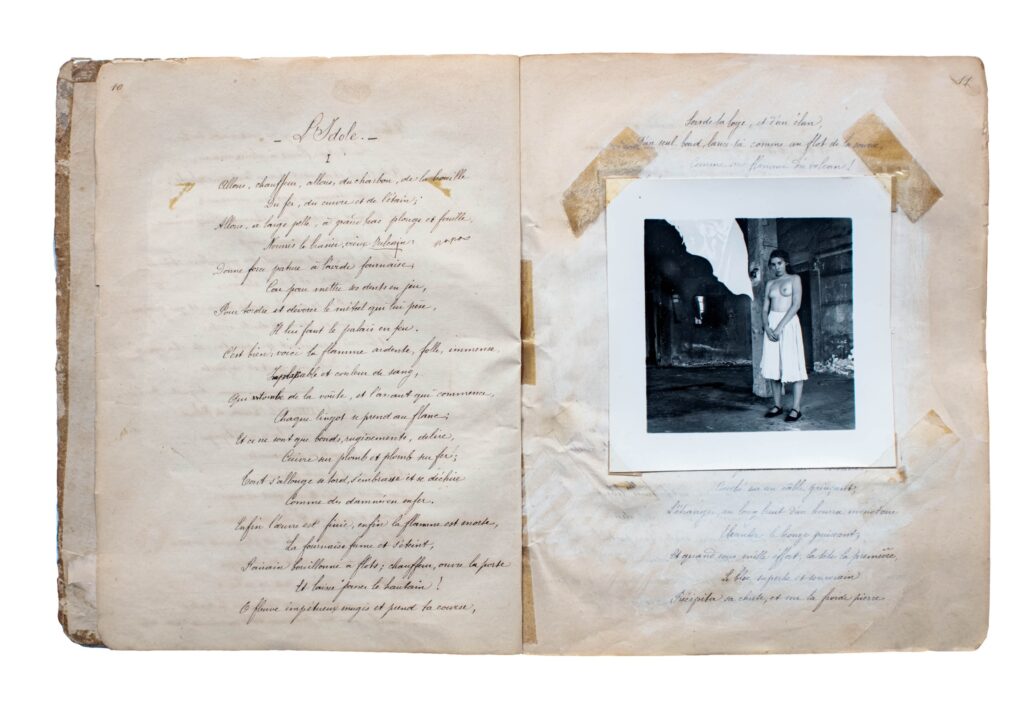 10
L'Idole.
I
Allons, chauffeur, allons, du charbon, de la houille
Du fer, du cuivre et de l'étain;
Allons, à large pelle, à grands bras plonge et fouille,
Nourris le brasier, vieux Vulcain.
Donne force pature à l'avide fournaise;
Car pour mettre ses dents en jeu,
Pour tordre et dévorer le métal qui lui pèse,
Il lui faut le palais en feu.
C'est bien, voici la flamme ardente, folle, immense,
Implacable et couleur de sang,
Qui de la voute, et l'assaut qui commence,
Chaque lingot se prend au flanc;
Et ce ne sont que bonds, rugissements, délire,
Cuivre sur plomb et plomb sur fer;
Tout s'allonge se tord, s'embrasse et se déchire
Comme des damnés en enfer.
Enfin l'œuvre est finie, enfin la flamme est morte,
La fournaise fume et s'éteint,
L'airain bouillonne à flots; chauffeur, ouvre la porte
Et laisse passer le hautain!
O fleuve impétueux mugis et prend ta course,
11
Sors de ta loge, et d'un élan,
D'un seul bond, lance toi comme un flot de la source,
Comme une flamme du volcan!
sur un câble grinçant;
un long bruit d'un monotone
le bronze puissant;
Et quand sous mille effort, la tête la première,
Le bloc superbe et souverain
Précipita sa chute, et sur la froide pierre